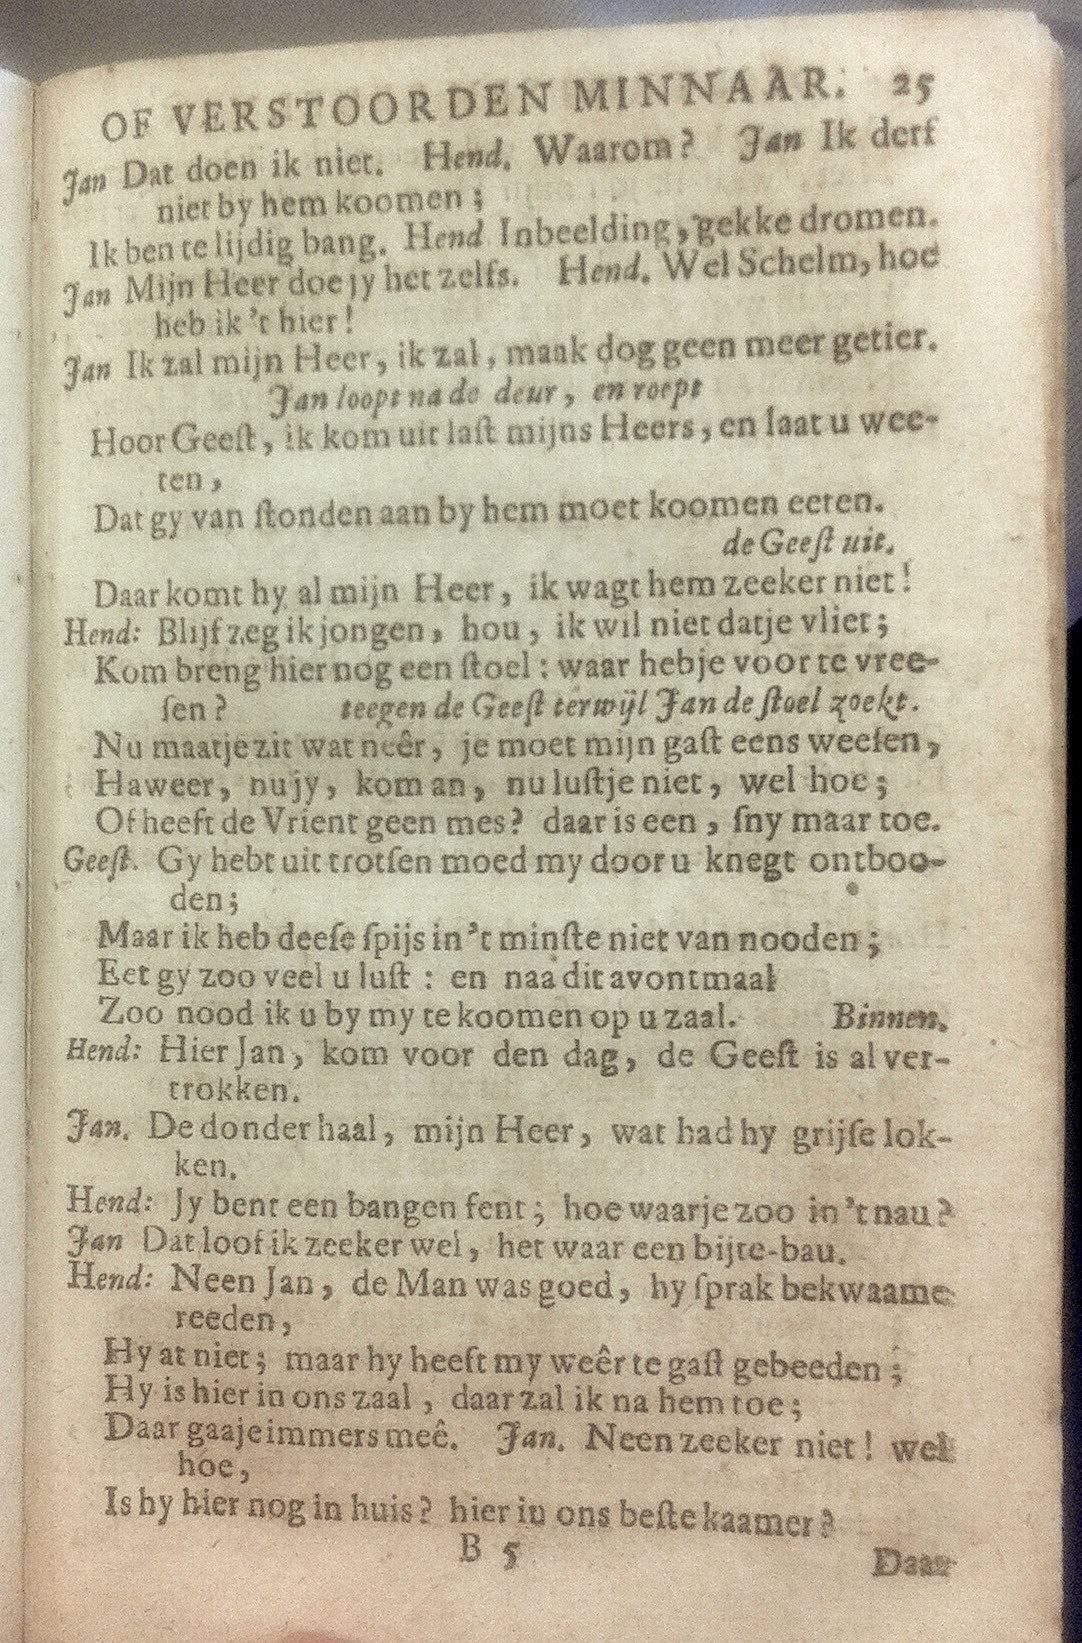 OF VERSTOORDEN MINNAAR. 25
Jan Dat doen ik niet. Hend. Waarom? Jan Ik derf
niet by hem koomen;
Ik ben te lijdig bang. Hend Inbeelding, gekke dromen.
Jan Mijn Heer doe jy het zelfs. Hend. Wel Schelm, hoe
heb ik 't hier!
Jan Ik zal mijn Heer, ik zal, maak dog geen meer getier.
Jan loopt na de deur, en roept
Hoor Geeſt, ik kom uit laſt mijns Heers, en laat u wee-
ten,
Dat gy van ſtonden aan by hem moet koomen eeten.
de Geeſt uit.
Daar komt hy al mijn Heer, ik wagt hem zeeker niet!
Hend: Blijf zeg ik jongen, hou, ik wil niet datje vliet;
Kom breng hier nog een ſtoel: waar hebje voor te vree-
ſen? teegen de Geeſt terwijl Jan de ſtoel zoekt.
Nu maatje zit wat neêr, je moet mijn gaſt eens weeſen,
Haweer, nu jy, kom an, nu luſtje niet, wel hoe;
Of heeft de Vrient geen mes? daar is een, ſny maar toe.
Geeſt. Gy hebt uit trotſen moed my door u knegt ontboo-
den;
Maar ik heb deeſe ſpijs in 't minſte niet van nooden;
Eet gy zoo veel u luſt: en naa dit avontmaal
Zoo nood ik u by my te koomen op u zaal. Binnen.
Hend: Hier Jan, kom voor den dag, de Geeſt is al ver-
trokken.
Jan. De donder haal, mijn Heer, wat had hy grijſe lok-
ken.
Hend: Jy bent een bangen fent; hoe waarje zoo in 't nau?
Jan Dat loof ik zeeker wel, het waar een bijte-bau.
Hend: Neen Jan, de Man was goed, hy ſprak bekwaame
reeden,
Hy at niet; maar hy heeft my weêr te gaſt gebeeden;
Hy is hier in ons zaal, daar zal ik na hem toe;
Daar gaaje immers meê. Jan. Neen zeeker niet! wel
hoe,
Is hy hier nog in huis? hier in ons beſte kaamer?
B 5
Daar